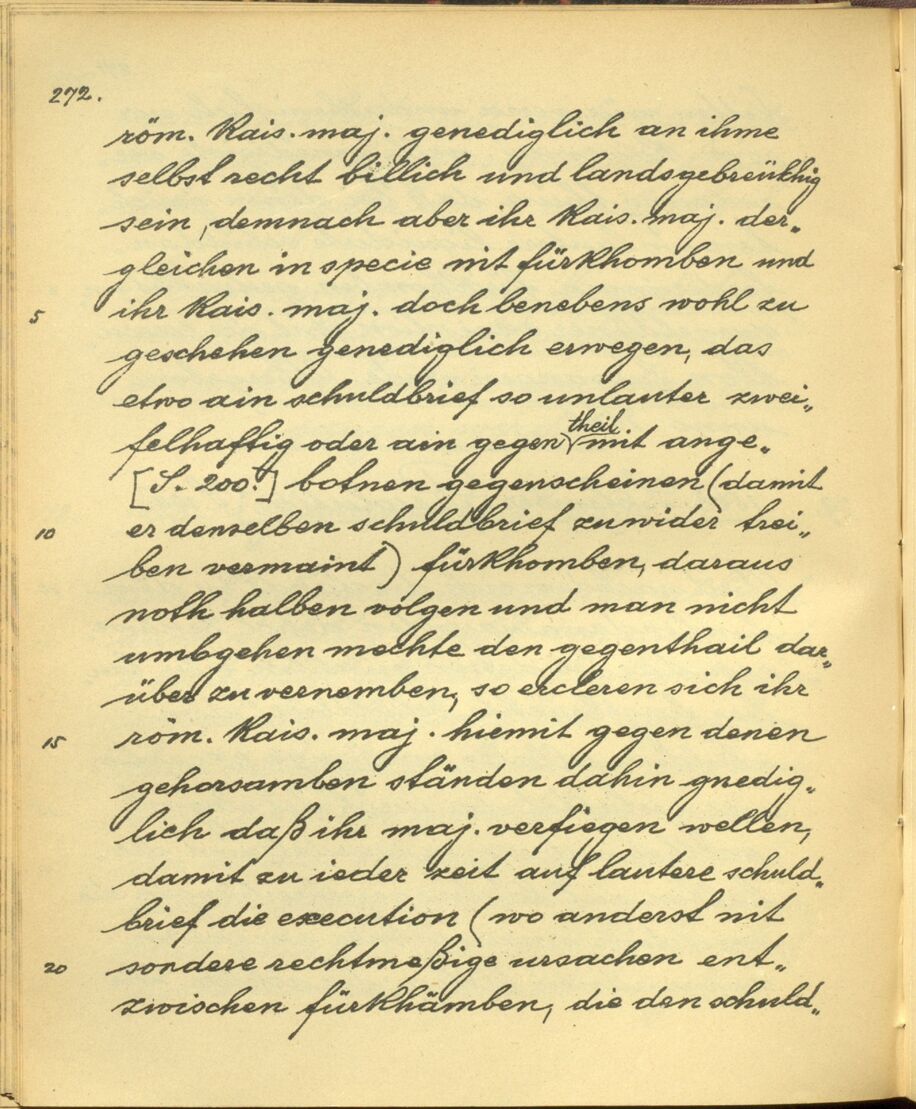 272.
röm. Kais. maj. genediglich an ihme
selbst recht billich und landsgebreükhig
sein, demnach aber ihr Kais. maj. der„
gleichen in specie nit fürkhomben und
5 ihr Kais. maj. doch benebens wohl zu
geschehen genediglich erwegen, das
etwo ain schuldbrief so unlauter zwei„
felhaftig oder ain gegen theil mit ange„
[S. 200.] botnen gegenscheinen (damit
10 er demselben schuldbrief zuwider trei„
ben vermaint) fürkhomben, daraus
noth halben volgen und man nicht
umbgehen mechte den gegenthail dar„
über zu vernemben, so ercleren sich ihr
15 röm. Kais. maj. hiemit gegen denen
gehorsamben ständen dahin gnedig„
lich daß ihr maj. verfiegen wellen,
damit zu ieder zeit auf lautere schuld„
brief die execution (wo anderst nit
20 sondere rechtmeßige ursachen ent„
zwischen fürkhämben, die den schuld„